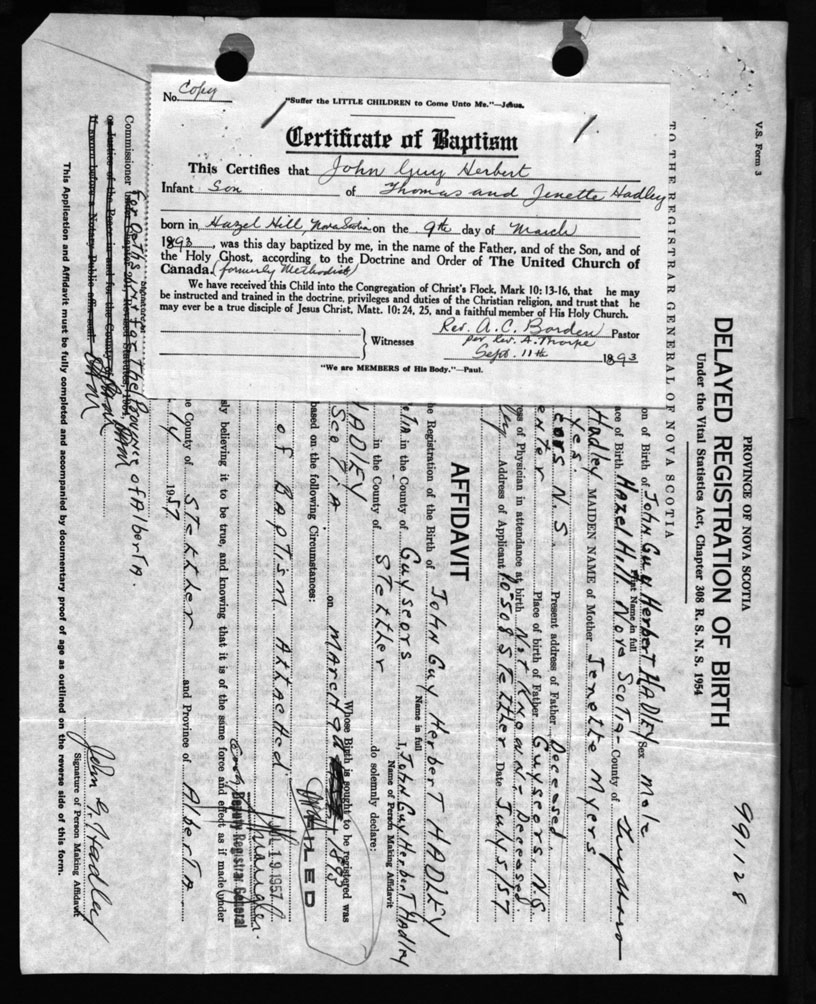 No. Copy
"Suffer the LITTLE CHILDREN to Come Unto Me."—Jesus.
Certificate of Baptism
This Certifies that John Guy Herbert
Infant Son of Thomas and Jenette Hadley
born in Hazel Hill, Nova Scotia on the 9th day of March
1893, was this day baptized by me, in the name of the Father, and of the Son, and of
the Holy Ghost, according to the Doctrine and Order of The United Church of
Canada. (formerly Methodist)
We have received this Child into the Congregation of Christ's Flock, Mark 10: 13-16, that he may
be instructed and trained in the doctrine, privileges and duties of the Christian religion, and trust that he
may ever be a true disciple of Jesus Christ, Matt. 10: 24, 25, and a faithful member of His Holy Church.
Rev. A. C. Borden Pastor
Witnesses per Rev. A. Thorpe
Sept. 11th 1893
"We are MEMBERS of His Body."—Paul.
V.S. Form 3
991128
PROVINCE OF NOVA SCOTIA
DELAYED REGISTRATION OF BIRTH
Under the Vital Statistics Act, Chapter 308 R. S. N. S. 1954
TO THE REGISTRAR GENERAL OF NOVA SCOTIA
on of Birth of John Guy Herbert HADLEY Sex Male
First Name in full
ace of Birth Hazel Hill Nova Scotia County of Guysboro
Hadley MAIDEN NAME of Mother Jenette Myers
yes.
ors N.S. Present address of Father Deceased.
enter Place of Birth of Father Guyseors, N.S.
ess of Physician in attendance at birth Not Known - Deceased.
Address of Applicant 10508 Stettler Date July 5/57
AFFIDAVIT
he Registration of the Birth of JOHN Guy HerberT HADLEY
Name in full
in the County of Guyseors I, JOHN Guy HerberT Hadley
Name of Person Making Affidavit
in the County of STeTTler do solemnly declare:
HADLEY Whose Birth is sought to be registered was
ScoTiA on MArcH 9th 1893
based on the following Circumstances:
of BApTism ATTAcHed.
MAILED
JUL 19 1957
Deputy Registrar General
sly believing it to be true, and knowing that it is of the same force and effect as if made under
he County of STeTTler and Province of AlberTA
1957
John G. Hadley
Signature of Person Making Affidavit
Commissioner
For OATHs in & For The Province of AlberTA.
or Justice of the Peace in and for the County of
If sworn before a Notary Public affix seal.
This Application and Affidavit must be fully completed and accompanied by documentary proof of age as outlined on the reverse side of this form.